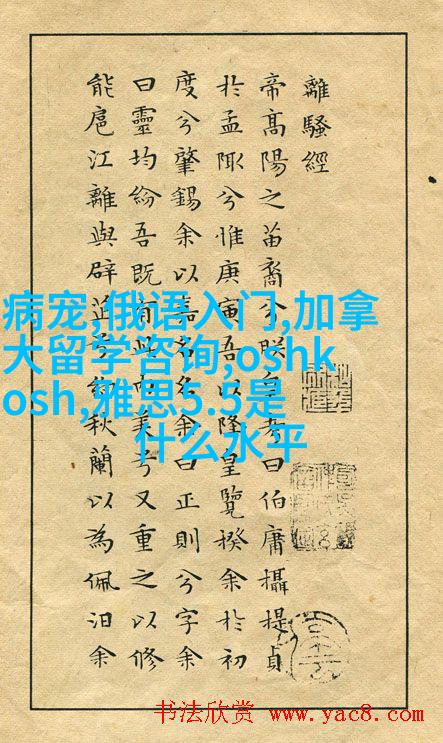 離騷經
帝高陽之苗裔兮朕皇考曰伯庸攝提貞
於孟陬兮惟庚寅吾以降皇覽揆余於初
度兮肇錫余以嘉名名余曰正則兮字余
曰靈均紛吾既有此內美兮又重之以修
能扈江離與辟芷兮紉秋蘭以為佩汨余
病宠,俄语入门,加拿
大留学咨询,oshk
osh,雅思5.5是
什么水平
书法欣赏 www.yac8.com